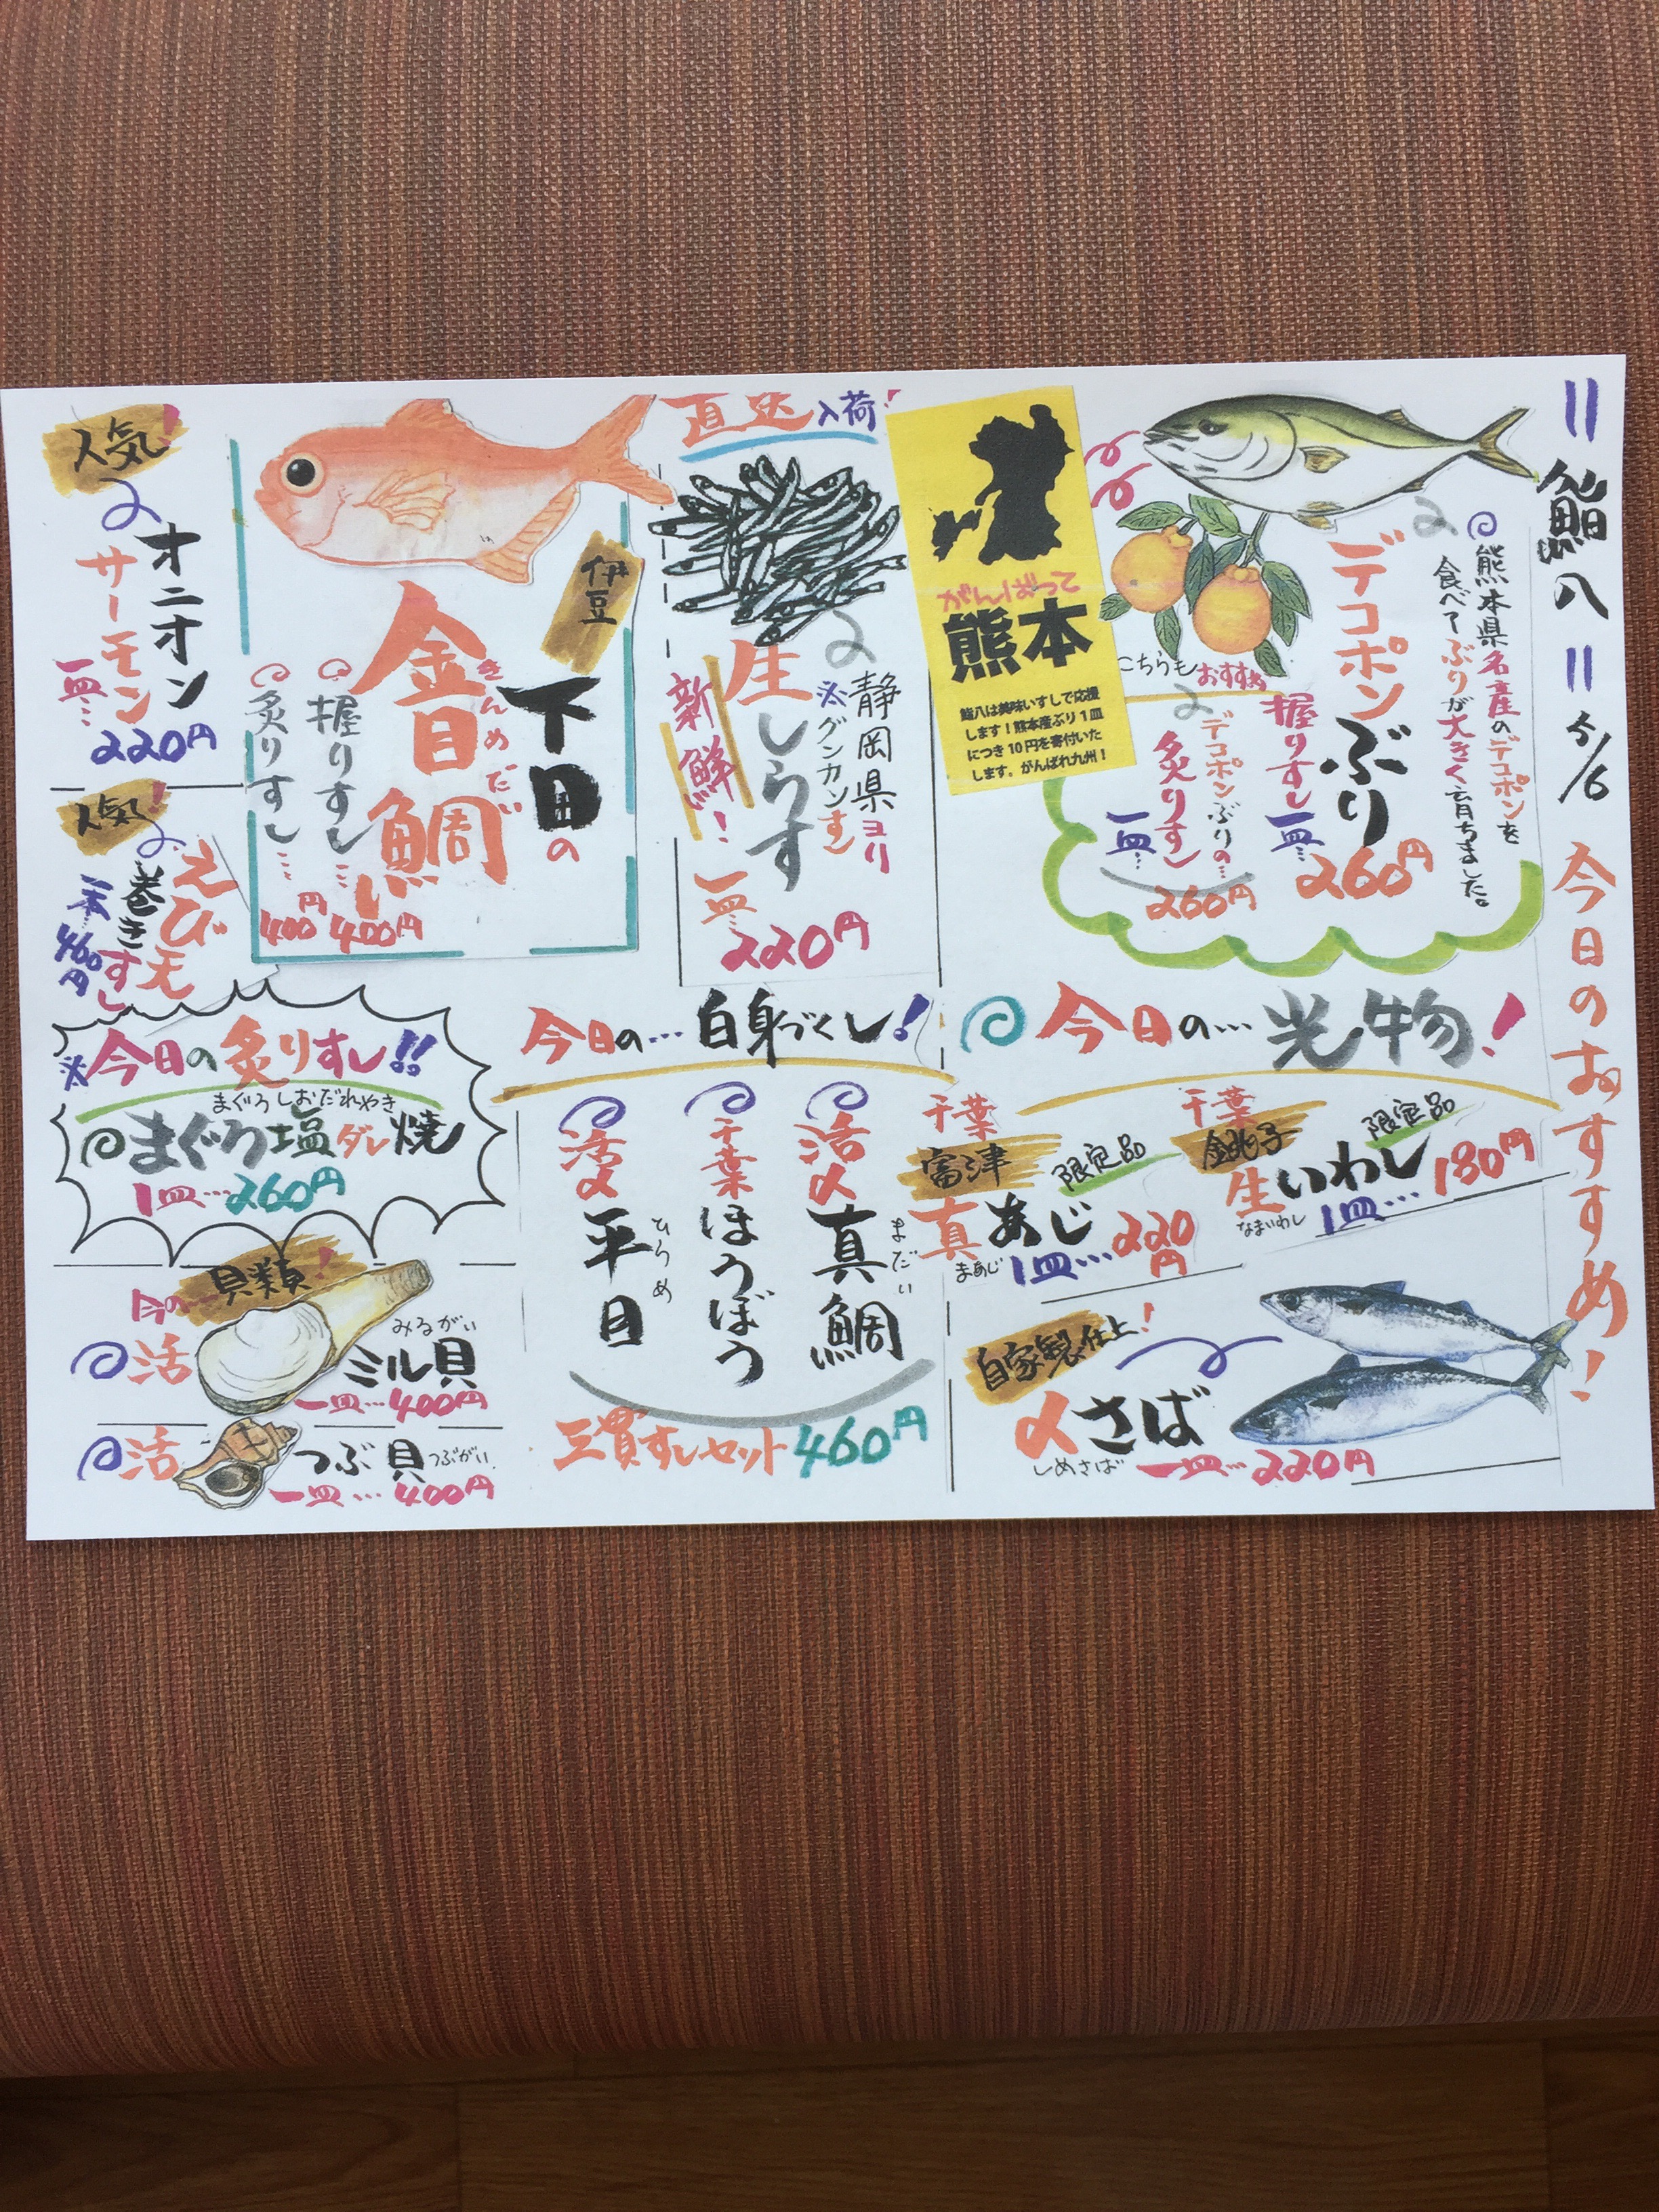 鮨八 5/6 今日のおすすめ!
熊本県名産のデコポンを
食べてぶりが大きく育ちました。
デコポンぶり
握りすし一皿… 260円
こちらもおすすめ
デコポンぶりの…
炙りすし
一皿… 260円
がんばって
熊本
鮨八は美味いすしで応援
します!熊本産ぶり1皿
につき10円を寄付いた
します。がんばれ九州!
直送入荷!
静岡県ヨリ
※グンカンすし
生しらす
新鮮!
一皿… 220円
伊豆
下田の
金目鯛
きんめだい
握りすし… 400円
炙りすし… 400円
人気!
オニオン
サーモン
一皿… 220円
人気!
えび天
巻きすし
一本… 460円
今日の…光物!
千葉
銚子
限定品
生いわし
なまいわし
1皿… 180円
千葉
富津
限定品
真あじ
まあじ
1皿… 220円
自家製仕上!
〆さば
しめさば
一皿… 220円
今日の…白身づくし!
活〆真鯛
まだい
千葉ほうぼう
活〆平目
ひらめ
三貫すしセット460円
※今日の炙りすし!!
まぐろしおだれやき
まぐろ塩ダレ焼
1皿…260円
今の貝類!
活
みるがい
ミル貝
一皿…400円
活
つぶ貝
つぶがい
一皿…400円